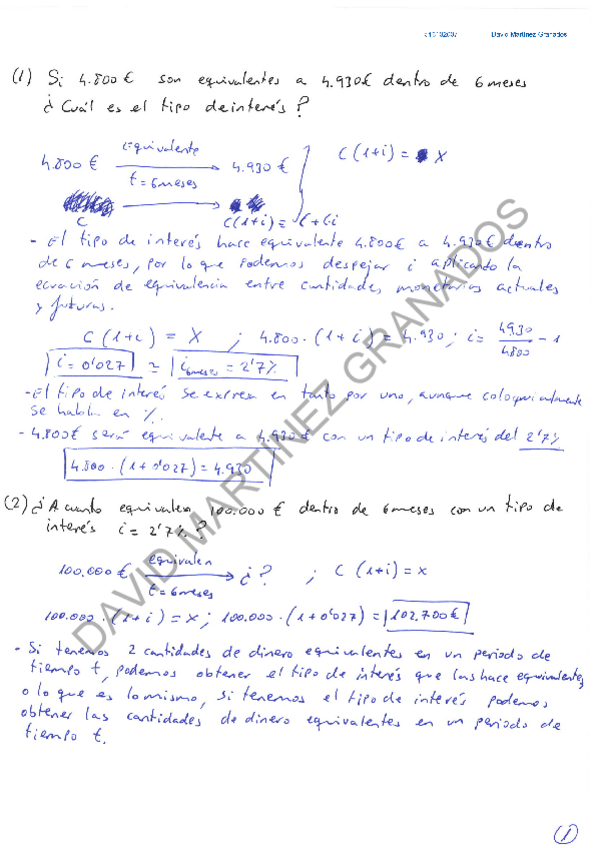 David Martinez Granados
(1) Si 4.800 € son equivalentes a 4.930€ dentro de 6 meses
¿Cuál es el tipo de interés?
4.800 € equivalente 4.930 € C(1+i) = X
t = 6 meses
C C(1+i) = C+C·i
- El tipo de interés hace equivalente 4.800€ a 4.930€ dentro
de 6 meses, por lo que podemos despejar i aplicando la
ecuación de equivalencia entre cantidades monetarias actuales
y futuras.
C(1+i) = X ; 4.800·(1+i) = 4.930; i = 4930/4.800 - 1
i = 0'027 ≃ i6meses = 2'7%
- El tipo de interés se expresa en tanto por uno, aunque coloquialmente
se habla en %.
- 4.800€ será equivalente a 4.930€ con un tipo de interés del 2'7%
4.800·(1+0'027) = 4.930
(2) ¿A cuanto equivalen 100.000 € dentro de 6 meses con un tipo de
interés i = 2'7%?
100.000 € equivalen ¿? ; C(1+i) = X
t = 6 meses
100.000·(1+i) = X; 100.000·(1+0'027) = 102.700€
- Si tenemos 2 cantidades de dinero equivalentes en un periodo de
tiempo t, podemos obtener el tipo de interés que las hace equivalentes,
o lo que es lo mismo, si tenemos el tipo de interés podemos
obtener las cantidades de dinero equivalentes en un periodo de
tiempo t.
1
DAVID MARTINEZ GRANADOS